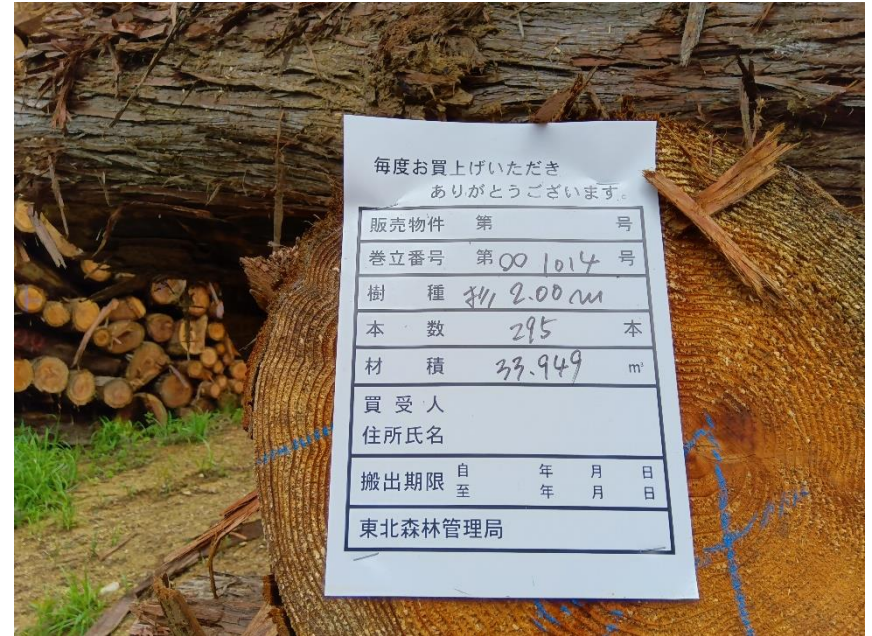 毎度お買上げいただき
ありがとうございます。
販売物件 第 号
巻立番号 第00 1014 号
樹種 杉 2.00m
本数 295 本
材積 33.949 m³
買受人
住所氏名
搬出期限 自 年 月 日
至 年 月 日
東北森林管理局